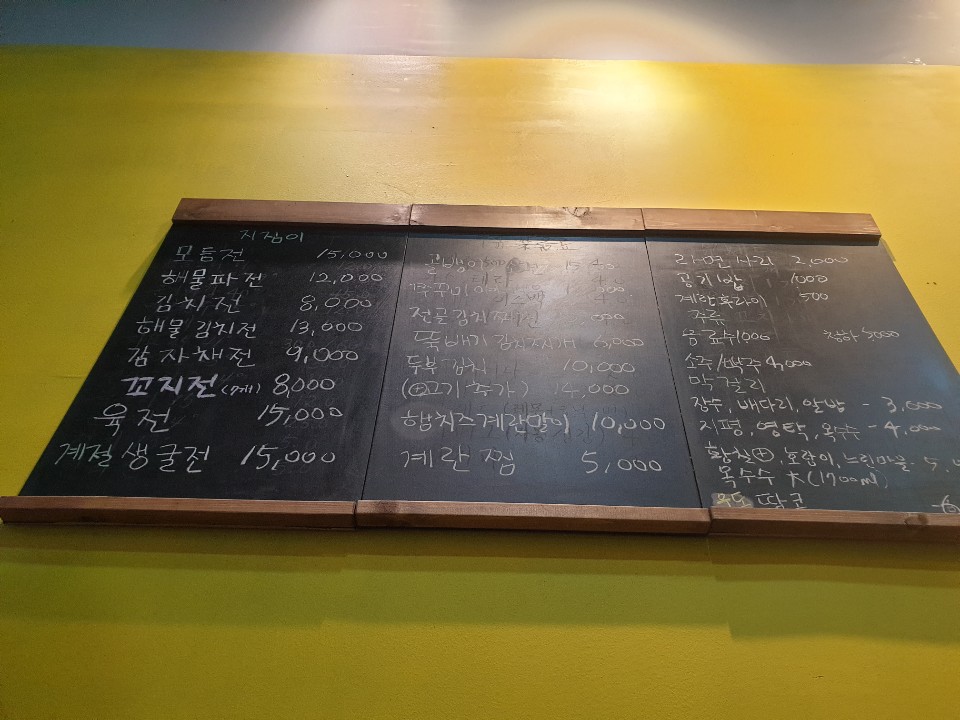 지짐이
모듬전 15,000
해물파전 12,000
김치전 8,000
해물김치전 13,000
감자채전 9,000
꼬지전 8,000
육전 15,000
계절생굴전 15,000
뚝배기 김치찌개 6,000
두부김치 10,000
(⊕고기추가) 14,000
햄치즈계란말이 10,000
계란찜 5,000
라면사리 2,000
공기밥 1000
계란후라이 500
주류
음료수 1000 청하 5000
소주/맥주 4,000
막걸리
장수, 배다리, 알밤 - 3,000
지평, 영탁, 옥수 - 4,000
황칠⊕, 호랑이, 느린마을
옥수수 大(1700ml)
우도 땅콩